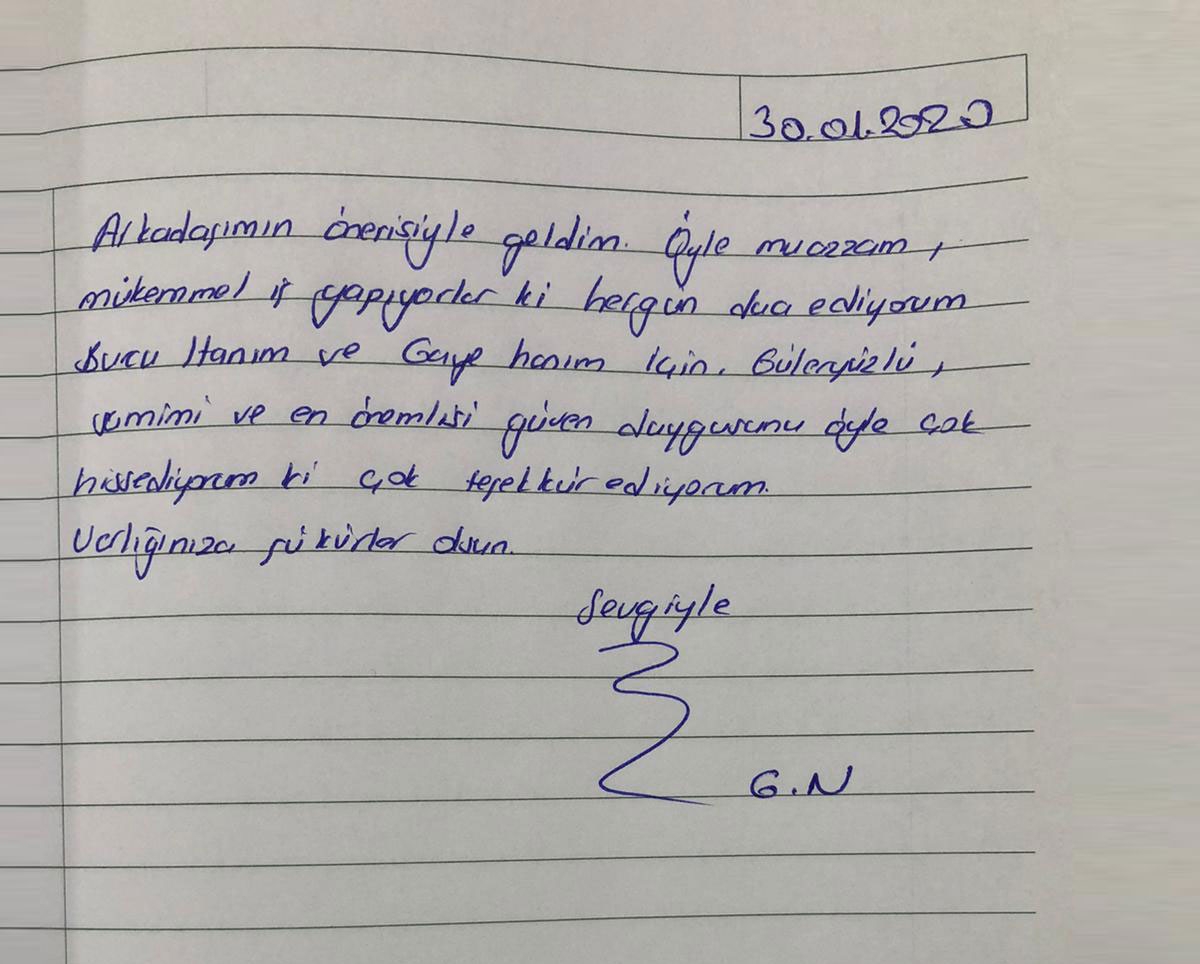 30.01.2020
Arkadaşımın önerisiyle geldim. Öyle muazzam,
mükemmel iş yapıyorlar ki hergün dua ediyorum
Burcu Hanım ve Gaye hanım için. Güleryüzlü,
samimi ve en önemlisi güven duygusunu öyle çok
hissediyorum ki çok teşekkür ediyorum.
Varlığınıza şükürler olsun.
Sevgiyle
G.N